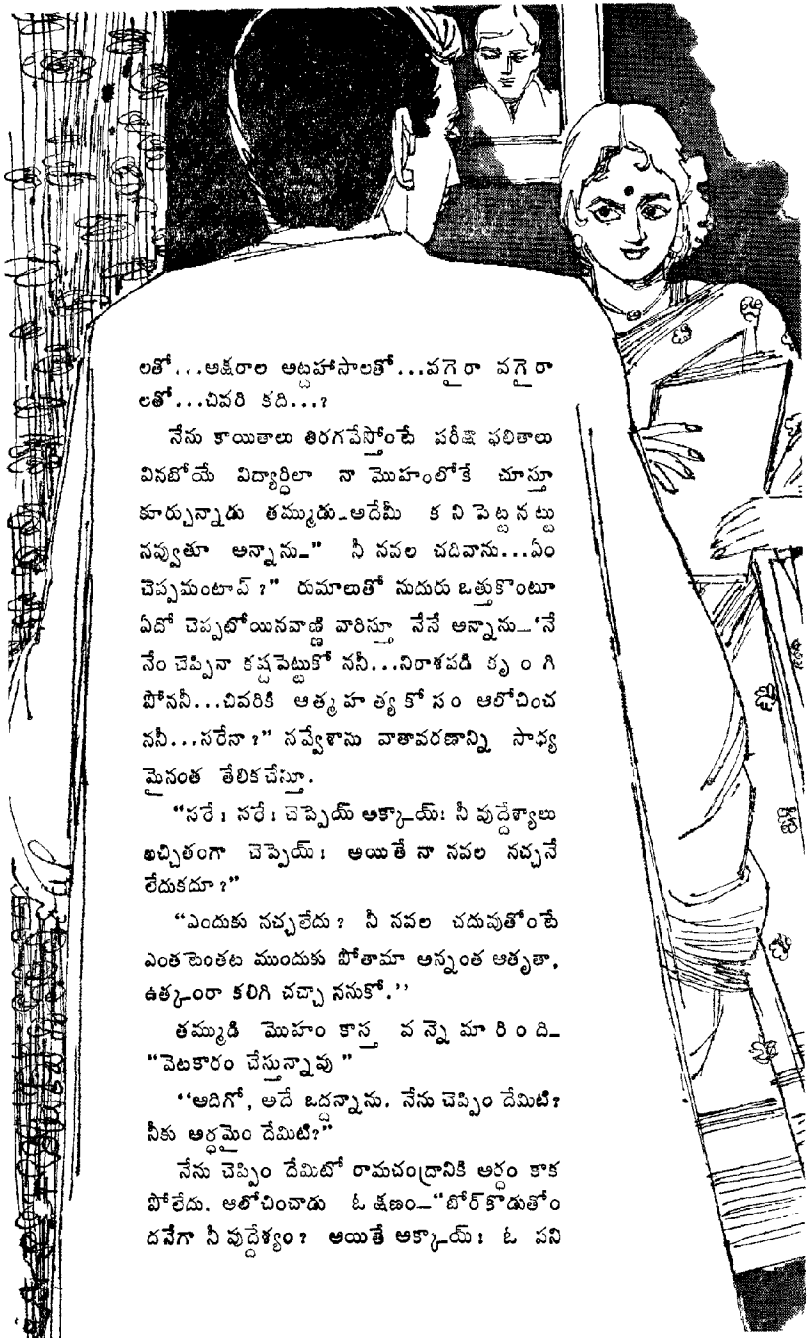 లతో...అక్షరాల అట్టహాసాలతో...వగైరా వగైరా
లతో...చివరి కది...?
నేను కాయితాలు తిరగవేస్తోంటే పరీక్ష ఫలితాలు
వినబోయే విద్యార్థిలా నా మొహంలోకే చూస్తూ
కూర్చున్నాడు తమ్ముడు_అదేమీ క ని పెట్ట న ట్టు
నవ్వుతూ అన్నాను_" నీ నవల చదివాను...ఏం
చెప్పమంటావ్ ?" రుమాలుతో నుదురు ఒత్తుకొంటూ
ఏదో చెప్పబోయినవాణ్ణి వారిస్తూ నేనే అన్నాను_'నే
నేం చెప్పినా కష్టపెట్టుకో ననీ...నిరాశపడి కృ ం గి
పోననీ...చివరికి ఆత్మ హ త్య కో సం ఆలోచించ
ననీ...సరేనా ?" నవ్వేశాను వాతావరణాన్ని సాధ్య
మైనంత తేలికచేస్తూ.
"సరే ! సరే ! చెప్పెయ్ అక్కాయ్! నీ వుద్దేశ్యాలు
ఖచ్చితంగా చెప్పెయ్ ! అయితే నా నవల నచ్చనే
లేదుకదూ ?"
"ఎందుకు నచ్చలేదు ? నీ నవల చదువుతోంటే
ఎంతటెంతట ముందుకు పోతామా అన్నంత ఆతృతా,
ఉత్కంఠా కలిగి చచ్చా ననుకో.''
తమ్ముడి మొహం కాస్త వ న్నె మా రి ం ది_
"వెటకారం చేస్తున్నావు "
''అదిగో, అదే ఒద్దన్నాను. నేను చెప్పిం దేమిటి?
నీకు అర్థమైం దేమిటి?"
నేను చెప్పిం దేమిటో రామచంద్రానికి అర్థం కాక
పోలేదు. ఆలోచించాడు ఓ క్షణం_"బోర్‌కొడుతోం
దనేగా నీ వుద్దేశ్యం ? అయితే అక్కాయ్ ! ఓ పని